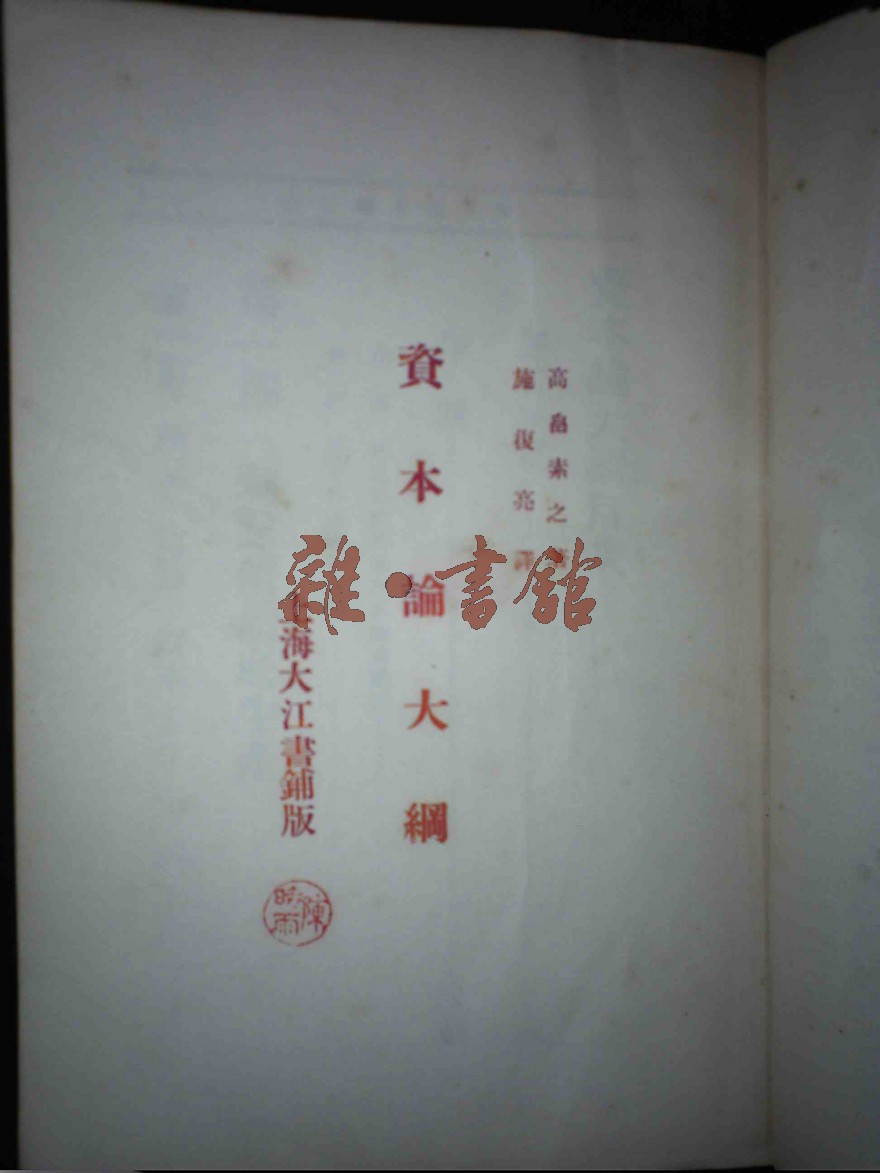 高畠素之著
施復亮譯
資本論大綱
上海大江書鋪版
陳時雨
雜·書館